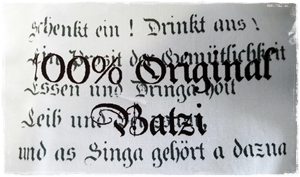 schenkt ein! Drinkt aus!
Ein Prosit der Gemütlichkeit
100% Original
Essen und Dringa hoit
Batzi
Leib und
und as Singa gehört a dazua